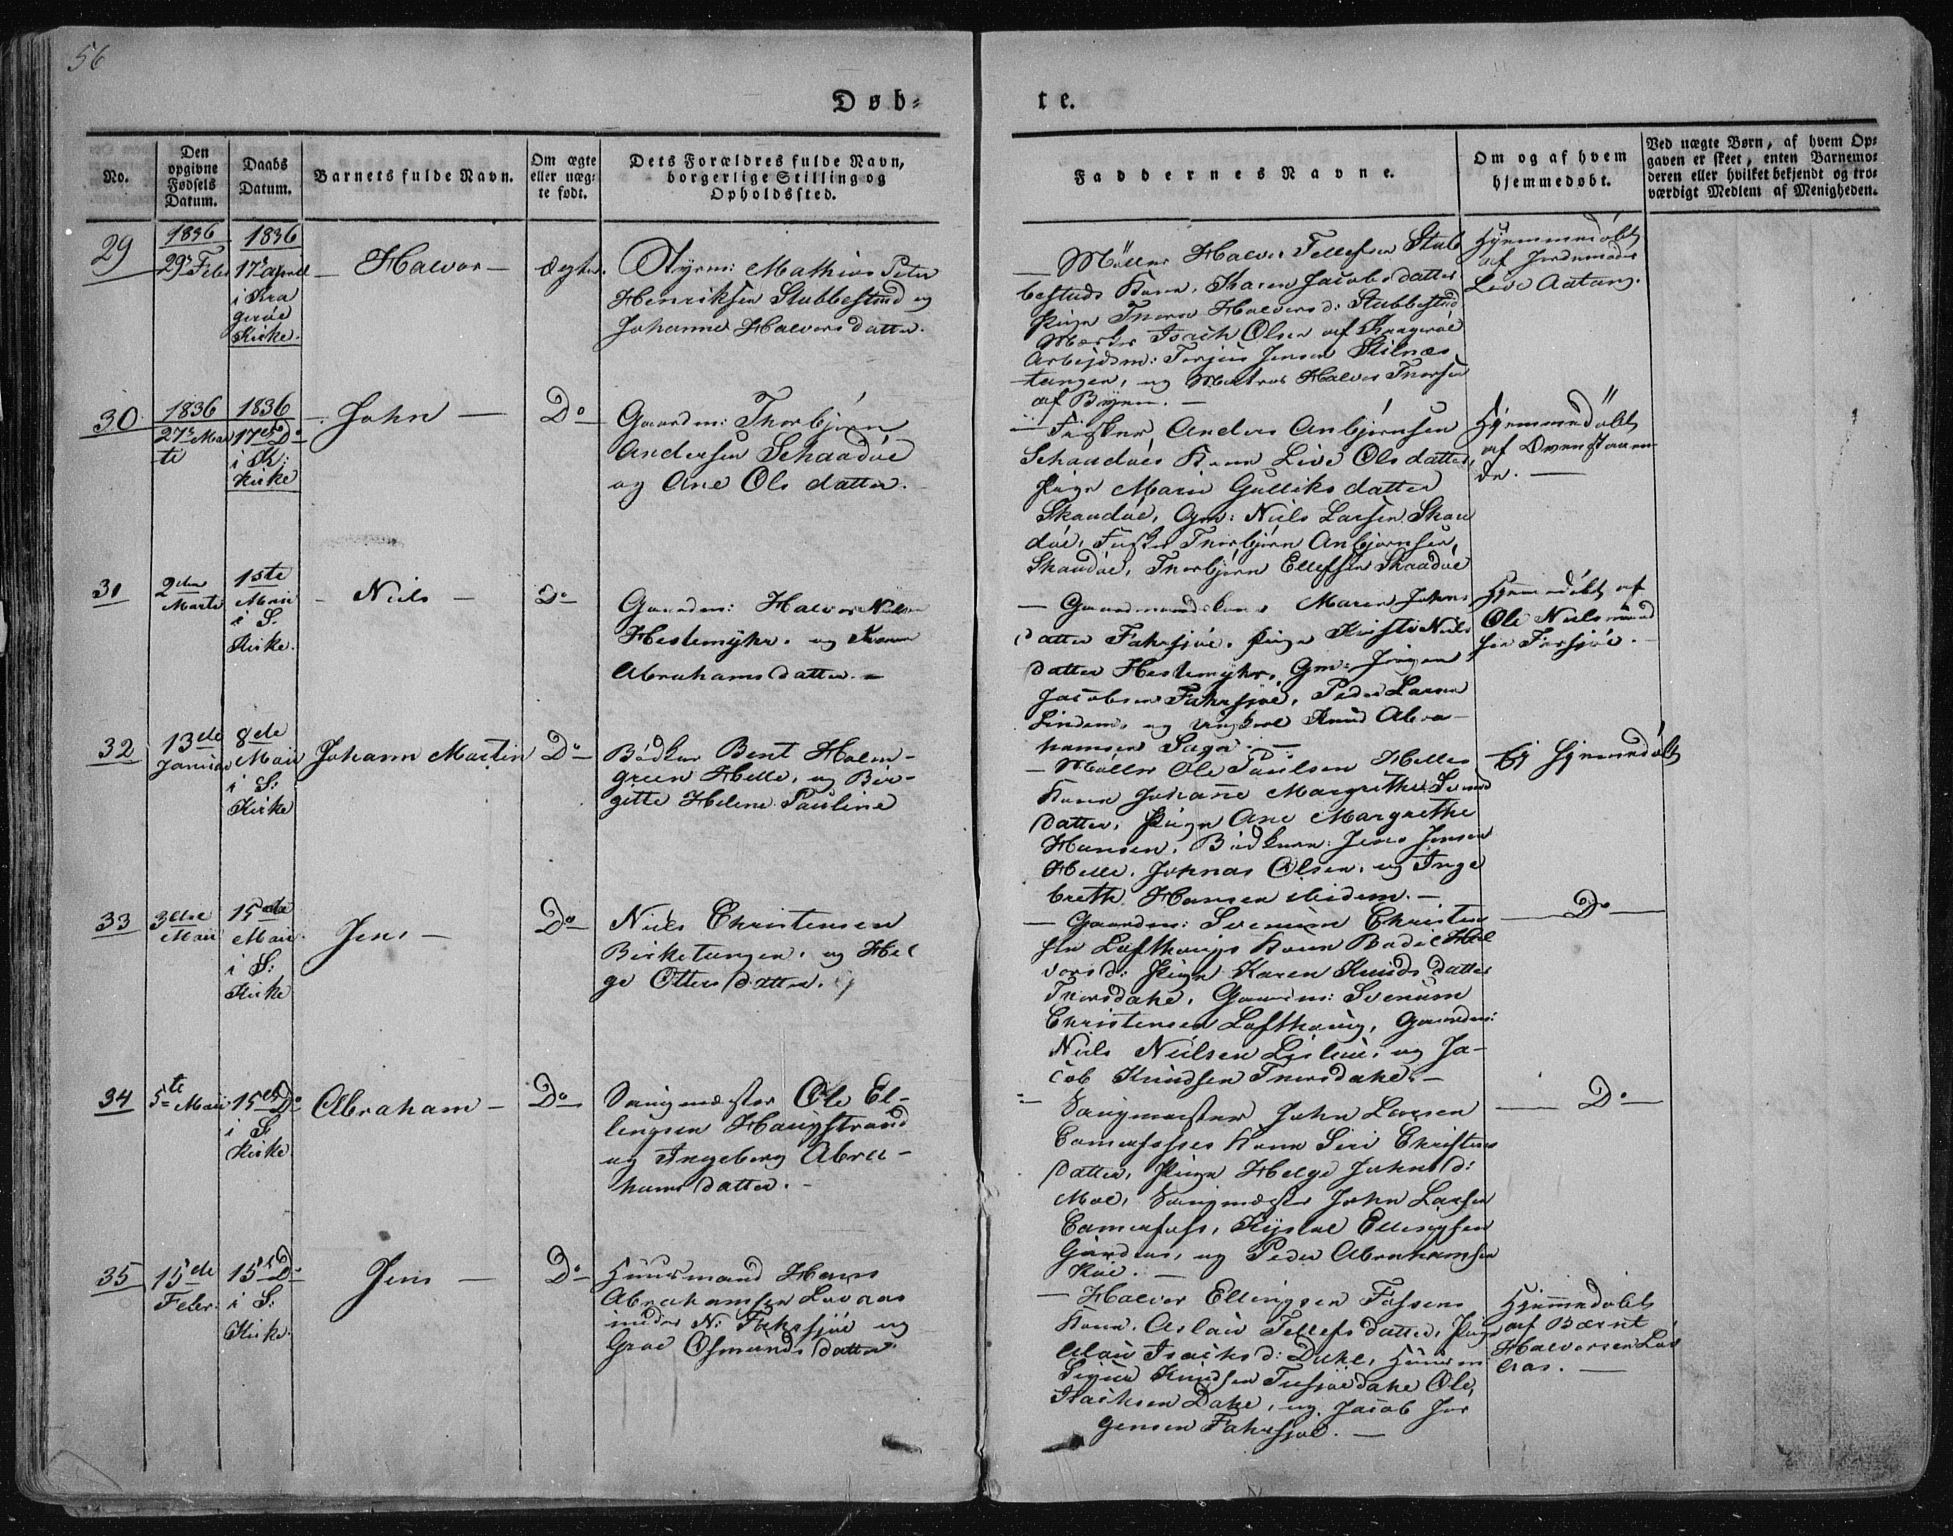 56
Døb-
te.
No.
Den opgivne Fødsels Datum.
Daabs Datum.
Barnets fulde Navn.
Om ægte eller uæg-te født.
Dets Forældres fulde Navn, borgerlige Stilling og Opholdssted.
Faddernes Navne.
Om og af hvem hjemmedøbt.
Ved uægte Børn, af hvem Op-
gaven er skeet, enten Barnemo-
deren eller hvilket bekjendt og tro-
værdigt Medlem af Menigheden.
29
1836
29de Febr
1836
17de April
i Kra
gerøe
Kirke.
Halvor
ægte.
Styrm: Mathias Peter
Henriksen Stubbestad og
Johanne Halvorsdatter.
Møller Halvor Tellefsen Stub
bestads Kone, Karen Jacobsdatter
Pige Thora Halvorsd: Stubbestad
Isach Olsen af Kragerøe
Arbejdsm: Terjus Jensen
tangen, og Matros Halvor Thorsen
af Byen.
Hjemmedøbt
af Jordemoder
30
1836
27de Mar
ti
1836
17de Do
i K:
Kirke
John
Do
Gaardm: Thorbjørn
Andersen Schaadøe
og Ane Olsdatter.
Fisker, Anders Anbjørnsen
Schaadøes Kone Live Olsdatter,
Pige Marie Gulliksdatter
Skaadøe, Gm: Niels Larsen Skaa
døe, Fisker Thorbjørn Anbjørnsen,
Skaadøe, Thorbjørn Ellefsen Skaadøe
Hjemmedøbt
af Ovenstaaen-
de.
31
2den
Marti
1ste
Maii
i S.
Kirke.
Niels
Do
Gaardm: Halvor Nielsen
Hestemyhr. og Karen
Abrahamsdatter.
Gaardmandskone Maren Johns
datter Farsjøe, Pige Kirsti Niels
datter Hestemyhr, Gm: Jørgen
Jacobsen Farsjøe, Peder Larsen
Linden, og Ungkarl Knud Abra-
hamsen
Hjemmedøbt af
Ole Nielsen
Farsjøe.
32
13de
Januar
8de
Maii
i S:
Kirke
Johann Martin
Do
Bødker Bent Holm-
green Helle, og Bir-
gitte Helene Pauline
Møller Ole Paulsen Helles
Kone Johanne Margrethe
datter, Pige Ane Margrethe
Hansen, Bødkerne: Jens Jensen
Helle, Johnas Olsen, og Inge
breth Hansen ibidem.
Ej hjemmedøbt
33
3die
Maii
15de
Maii
i S:
Kirke
Jens
Do
Niels Christensen
Birketangen, og Hel
ge Ottersdatter.
Gaardm: Svenum Christen
sen Lofthaugs Kone Bodil Hal
vorsd: Pige Karen Knudsdatter
Thorsdake, Gaardm: Svenum
Christensen Lofthaug, Gaardm:
Niels Nielsen og Ja-
cob Knudsen Thorsdake.
Do
34
5te Maii
15de Do
i S
Kirke
Abraham
Do
Saugmæster Ole El-
lingsen Haugstrand
og Ingeborg Abra-
hamsdatter.
Saugmæster John Larsen
Camerfosses Kone Siri Christens
datter, Pige Helge Johnsd:
Moe, Saugmæster John Larsen
Camerfoss, Kystol Ellingsen
og Peder Abrahamsen
Do
35
15de
Febr.
15de Do
i S:
Kirke.
Jens
Do
Huusmand Hans
Abrahamsen Lovaas
under N: Farsjøe og
Groe Osmundsdatter.
Halvor Ellingsen Fossens
Kone, Aslau Tellefsdatter, Pige
Alau Isachsd: Dake, Huusm
Sigur Knudsen Ole
Isachsen Dake, og Jacob Jør
gensen Farsjøe.
Hjemmedøbt
af Bærnt
Halvorsen Lov
aas.